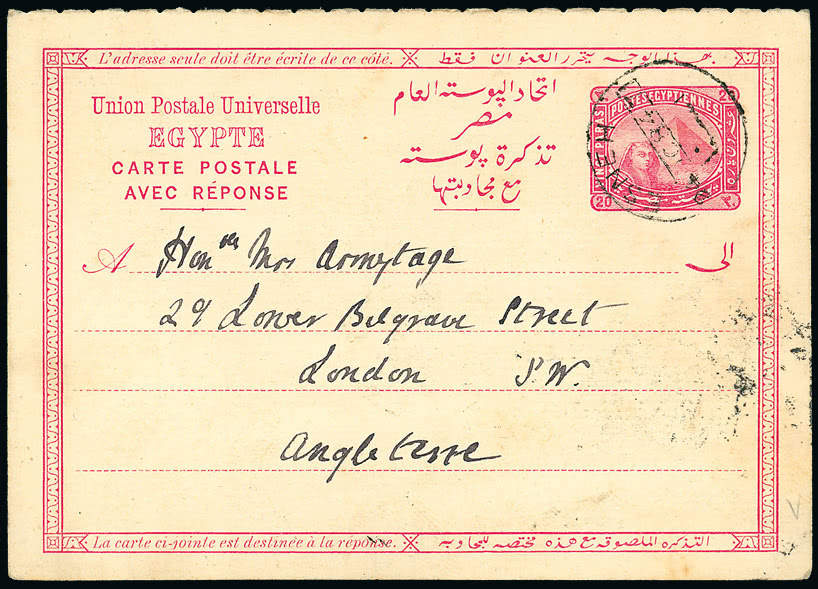 L'adresse seule doit être écrite de ce côté. بهذا الوجه يتحرر العنوان فقط
Union Postale Universelle
EGYPTE
CARTE POSTALE
AVEC RÉPONSE
اتحاد البوسته العام
مصر
تذكرة بوسته
مع مجاوبتها
POSTES EGYPTIENNES
20
٢٠
A Honble Mrs Armytage الى
29 Lower Belgrave Street
London S.W.
Angleterre
La carte ci-jointe est destinée à la réponse. التذكره الملصوقه مع هذه مختصه للمجاوبه